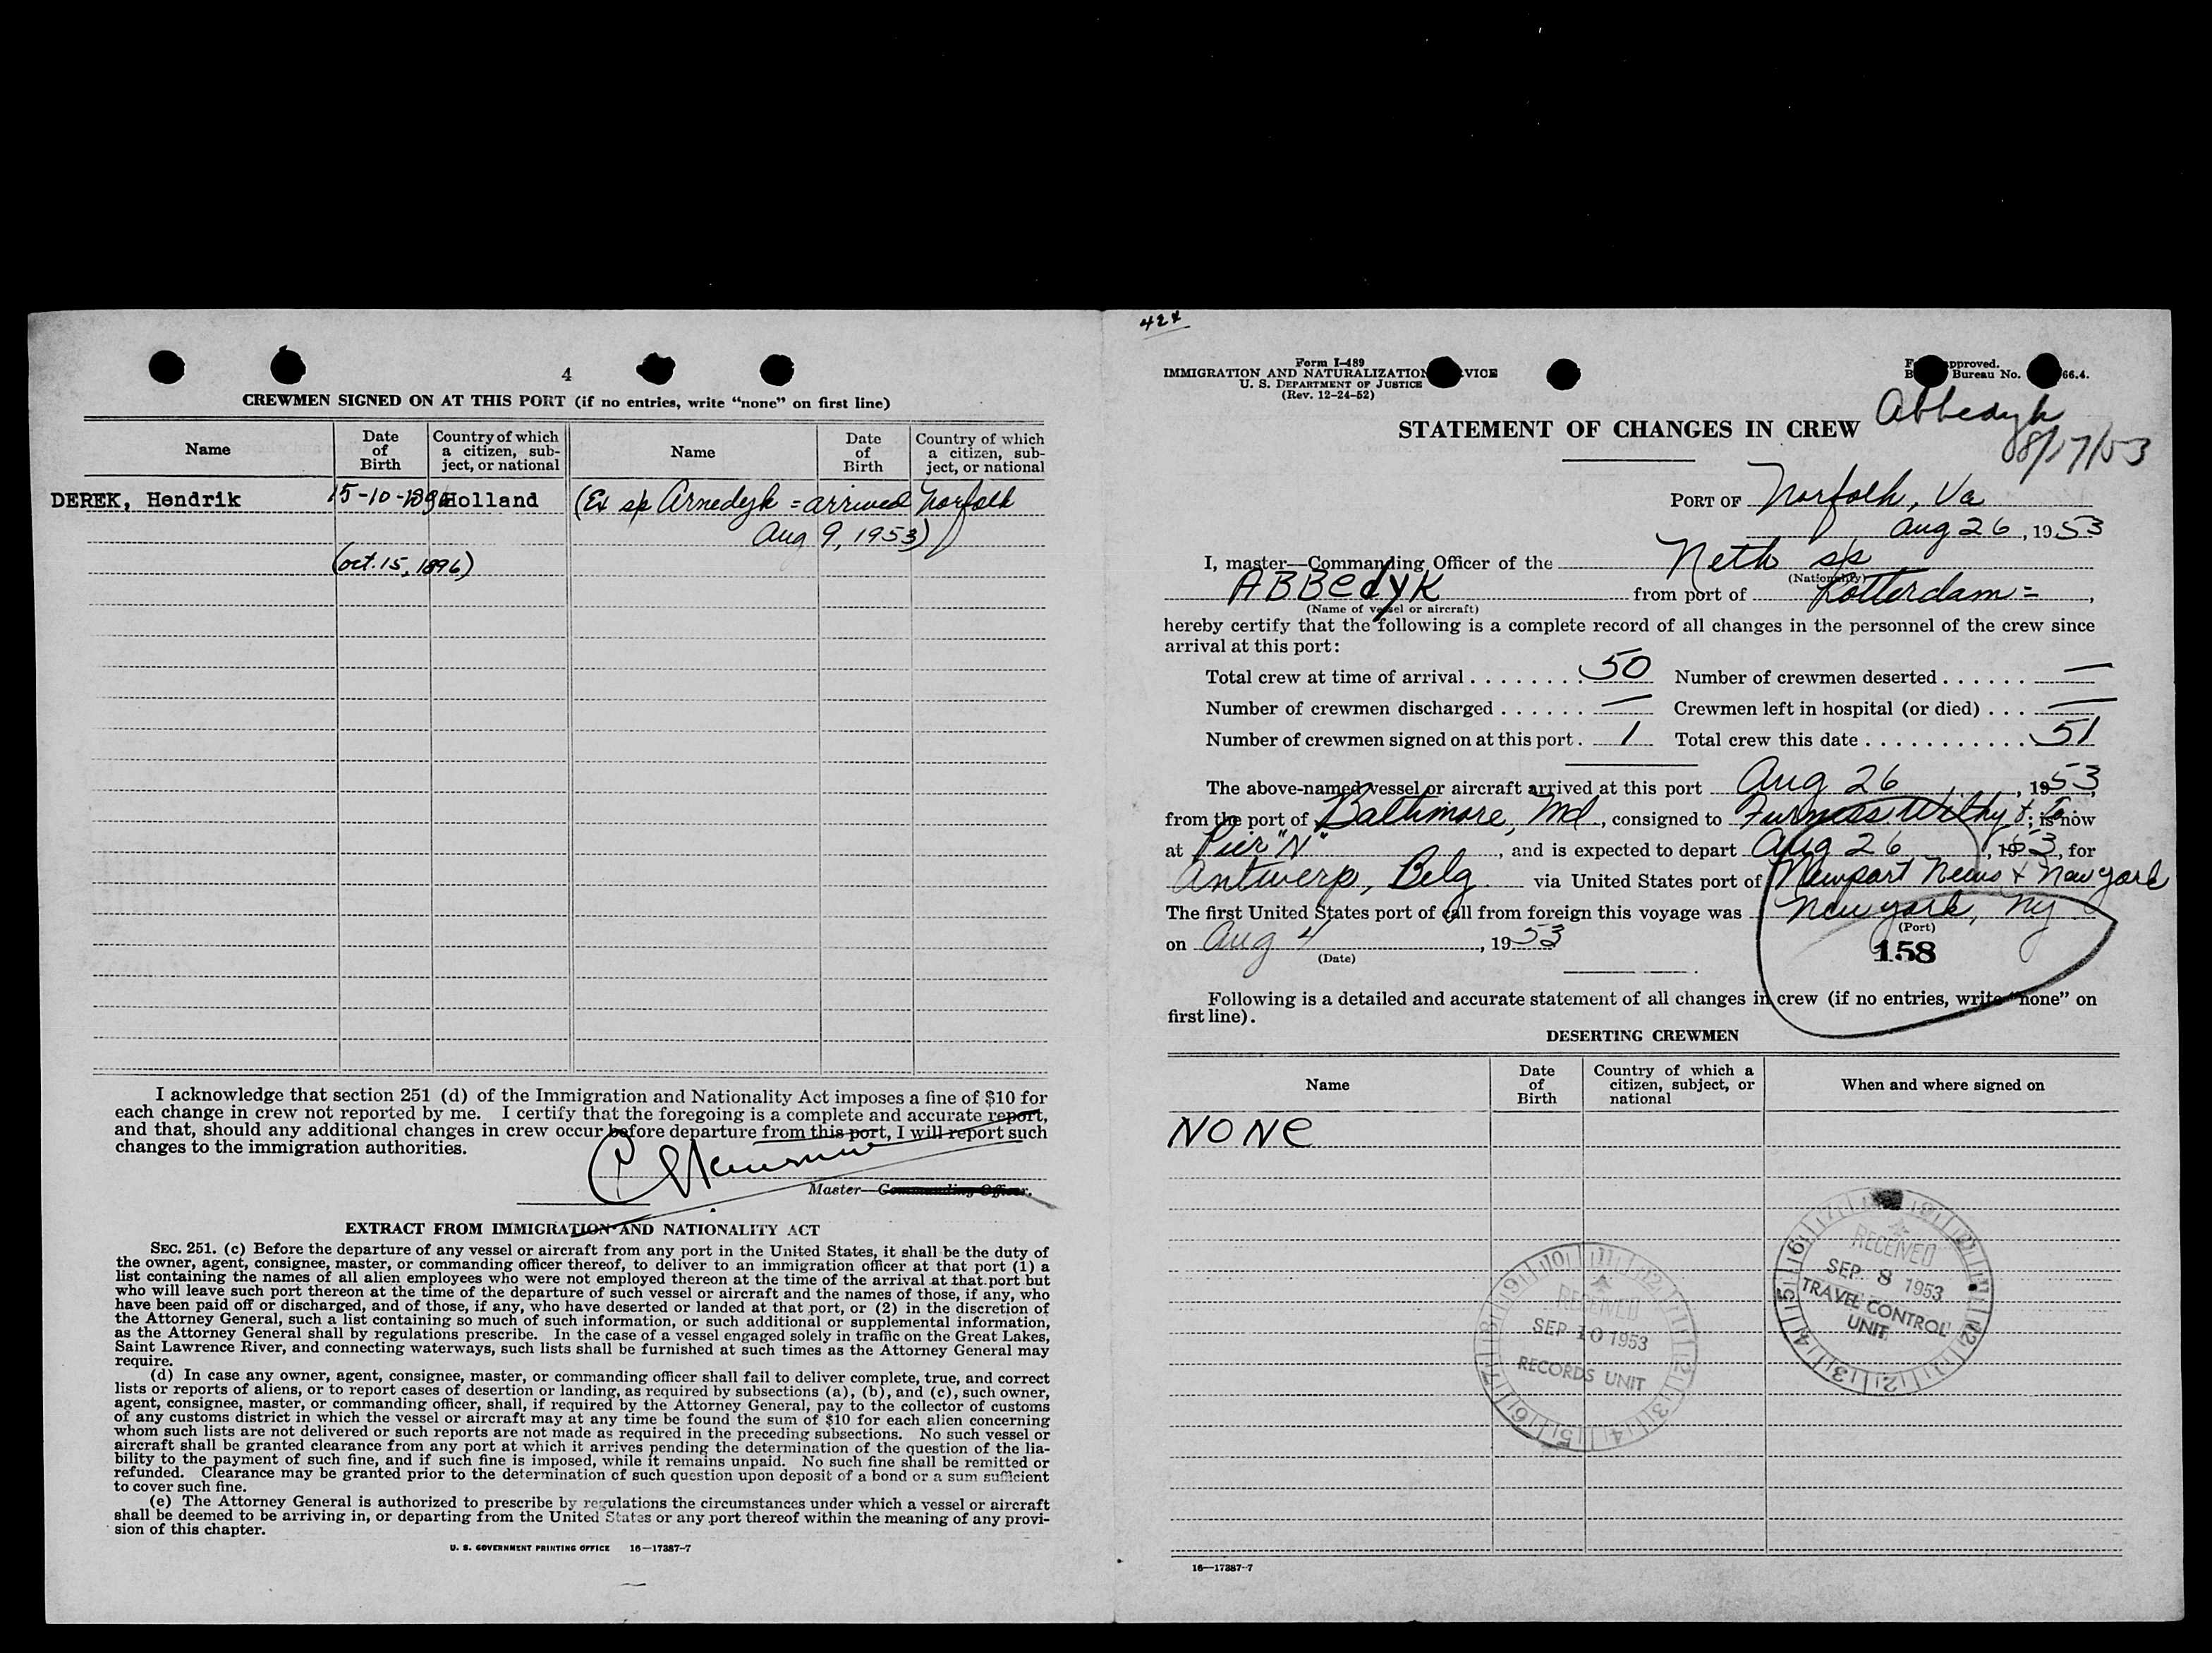 4
CREWMEN SIGNED ON AT THIS PORT (if no entries, write “none” on first line)
Name
Date of Birth
Country of which a citizen, subject, or national
Name
Date of Birth
Country of which a citizen, subject, or national
DEREK, Hendrik 15-10-1896 Holland (Ex s/s Arnedyk = arrived Norfolk
Aug 9, 1953)
(oct. 15, 1896)
I acknowledge that section 251 (d) of the Immigration and Nationality Act imposes a fine of $10 for
each change in crew not reported by me. I certify that the foregoing is a complete and accurate report,
and that, should any additional changes in crew occur before departure from this port, I will report such
changes to the immigration authorities.
Master—Commanding Officer.
EXTRACT FROM IMMIGRATION AND NATIONALITY ACT
SEC. 251. (c) Before the departure of any vessel or aircraft from any port in the United States, it shall be the duty of
the owner, agent, consignee, master, or commanding officer thereof, to deliver to an immigration officer at that port (1) a
list containing the names of all alien employees who were not employed thereon at the time of the arrival at that port but
who will leave such port thereon at the time of the departure of such vessel or aircraft and the names of those, if any, who
have been paid off or discharged, and of those, if any, who have deserted or landed at that port, or (2) in the discretion of
the Attorney General, such a list containing so much of such information, or such additional or supplemental information,
as the Attorney General shall by regulations prescribe. In the case of a vessel engaged solely in traffic on the Great Lakes,
Saint Lawrence River, and connecting waterways, such lists shall be furnished at such times as the Attorney General may
require.
(d) In case any owner, agent, consignee, master, or commanding officer shall fail to deliver complete, true, and correct
lists or reports of aliens, or to report cases of desertion or landing, as required by subsections (a), (b), and (c), such owner,
agent, consignee, master, or commanding officer, shall, if required by the Attorney General, pay to the collector of customs
of any customs district in which the vessel or aircraft may at any time be found the sum of $10 for each alien concerning
whom such lists are not delivered or such reports are not made as required in the preceding subsections. No such vessel or
aircraft shall be granted clearance from any port at which it arrives pending the determination of the question of the lia-
bility to the payment of such fine, and if such fine is imposed, while it remains unpaid. No such fine shall be remitted or
refunded. Clearance may be granted prior to the determination of such question upon deposit of a bond or a sum sufficient
to cover such fine.
(e) The Attorney General is authorized to prescribe by regulations the circumstances under which a vessel or aircraft
shall be deemed to be arriving in, or departing from the United States or any port thereof within the meaning of any provi-
sion of this chapter.
U. S. GOVERNMENT PRINTING OFFICE 16—17387-7
424
Form I-489
IMMIGRATION AND NATURALIZATION VICE
U. S. DEPARTMENT OF JUSTICE
(Rev. 12-24-52)
pproved.
Bureau No. 66.4.
Abbedyk
8/17/53
STATEMENT OF CHANGES IN CREW
PORT OF Norfolk, Va
Aug 26, 1953
I, master—Commanding Officer of the Neth s/s
(Nationality)
ABBedyk from port of Rotterdam =,
(Name of vessel or aircraft)
hereby certify that the following is a complete record of all changes in the personnel of the crew since
arrival at this port:
Total crew at time of arrival 50 Number of crewmen deserted —
Number of crewmen discharged — Crewmen left in hospital (or died) —
Number of crewmen signed on at this port. 1 Total crew this date 51
The above-named vessel or aircraft arrived at this port Aug 26, 1953,
from the port of Baltimore, Md., consigned to Furness Withy &; is now
at Pier "N", and is expected to depart Aug 26, 1953, for
Antwerp, Belg. via United States port of Newport News & New york
The first United States port of call from foreign this voyage was New york, Ny
(Port)
on Aug 4, 1953
(Date)
158
Following is a detailed and accurate statement of all changes in crew (if no entries, write “none” on
first line).
DESERTING CREWMEN
Name
Date of Birth
Country of which a citizen, subject, or national
When and where signed on
NONe
RECEIVED
SEP 8 1953
TRAVEL CONTROL
UNIT
RECEIVED
SEP 10 1953
RECORDS UNIT
16—17387-7